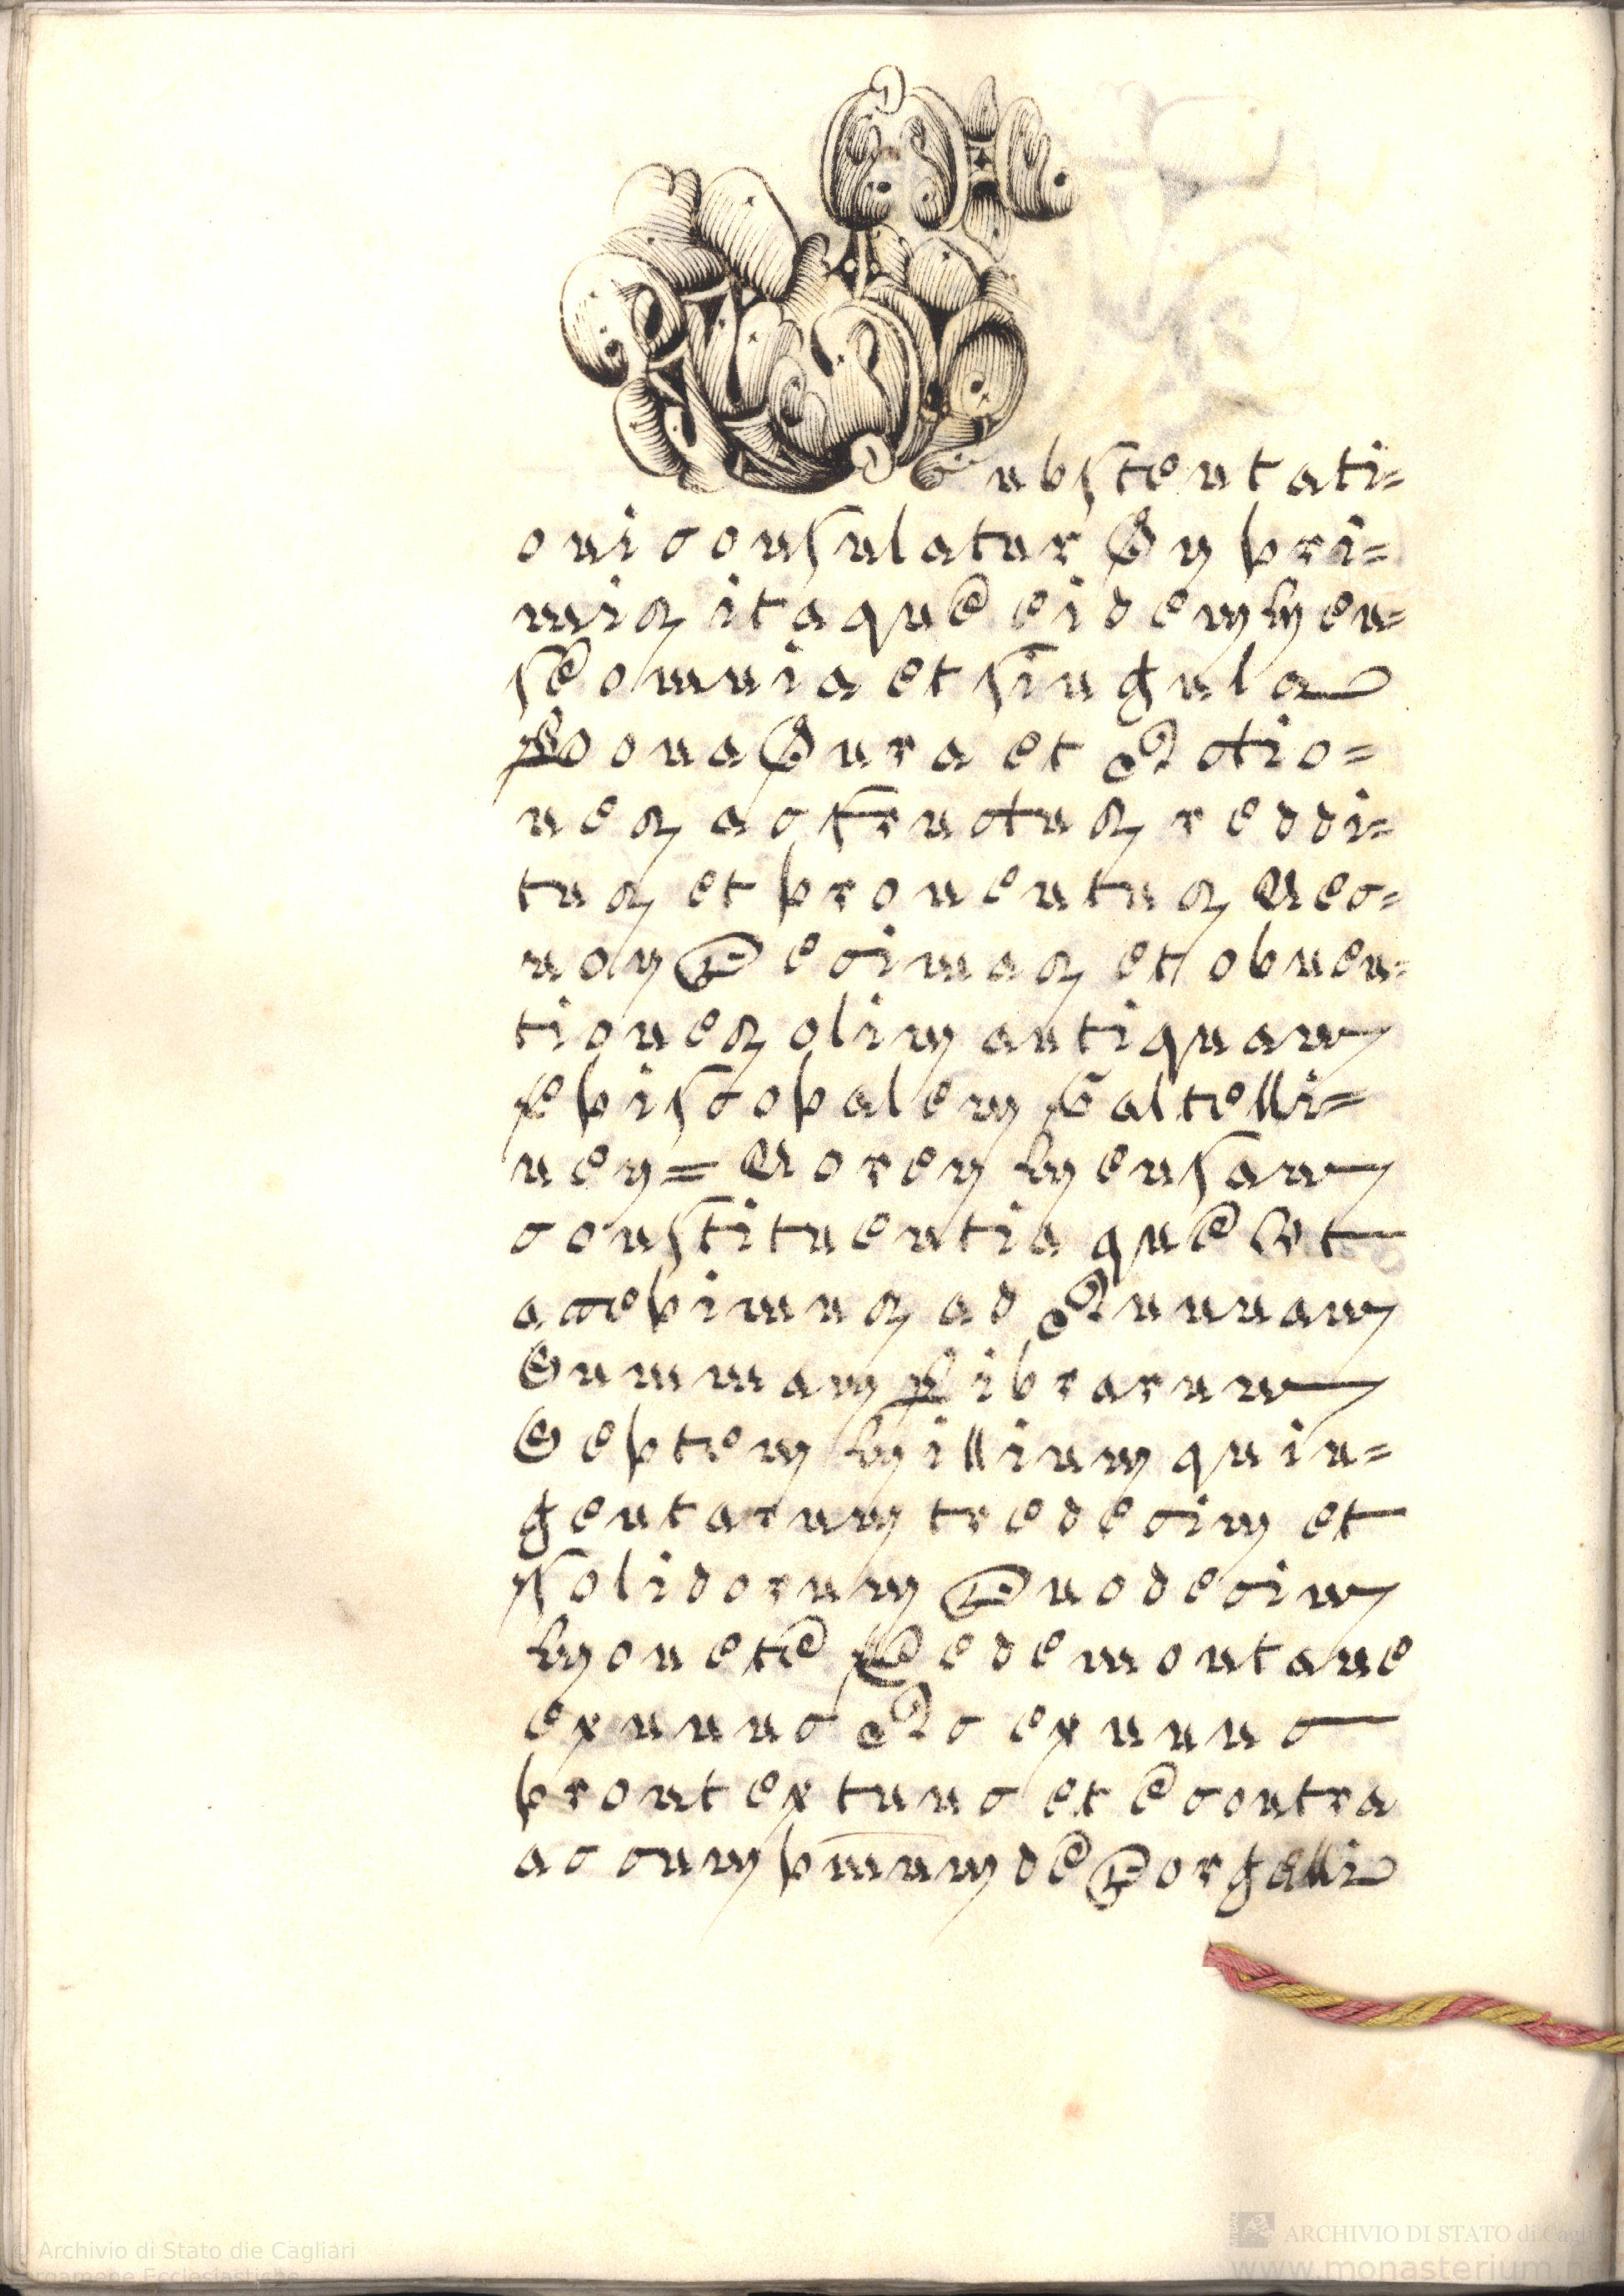 Substentati=
oni consulatur In pri=
mis itaque eidem Men=
se omnia et singula
Bona Iura et Actio=
nes ac fructus reddi=
tus et prouentus Nec=
non Decimas et obuen=
tiones olim antiquam
Episcopalem Galtelli=
nen= Noren Mensam
constituentia que ut
accepimus ad Annuam
Summam Librarum
Septem Millium quin=
gentarum tredecim et
solidorum Duodecim
Monete Pedemontane
ex nunc Ac ex nunc
prout ex tunc et e contra
ac cum pñium de Dorgali
© Archivio di Stato die Cagliari
Pergamene Ecclesiastiche
ARCHIVIO DI STATO di Cagli
www.monasterium.n